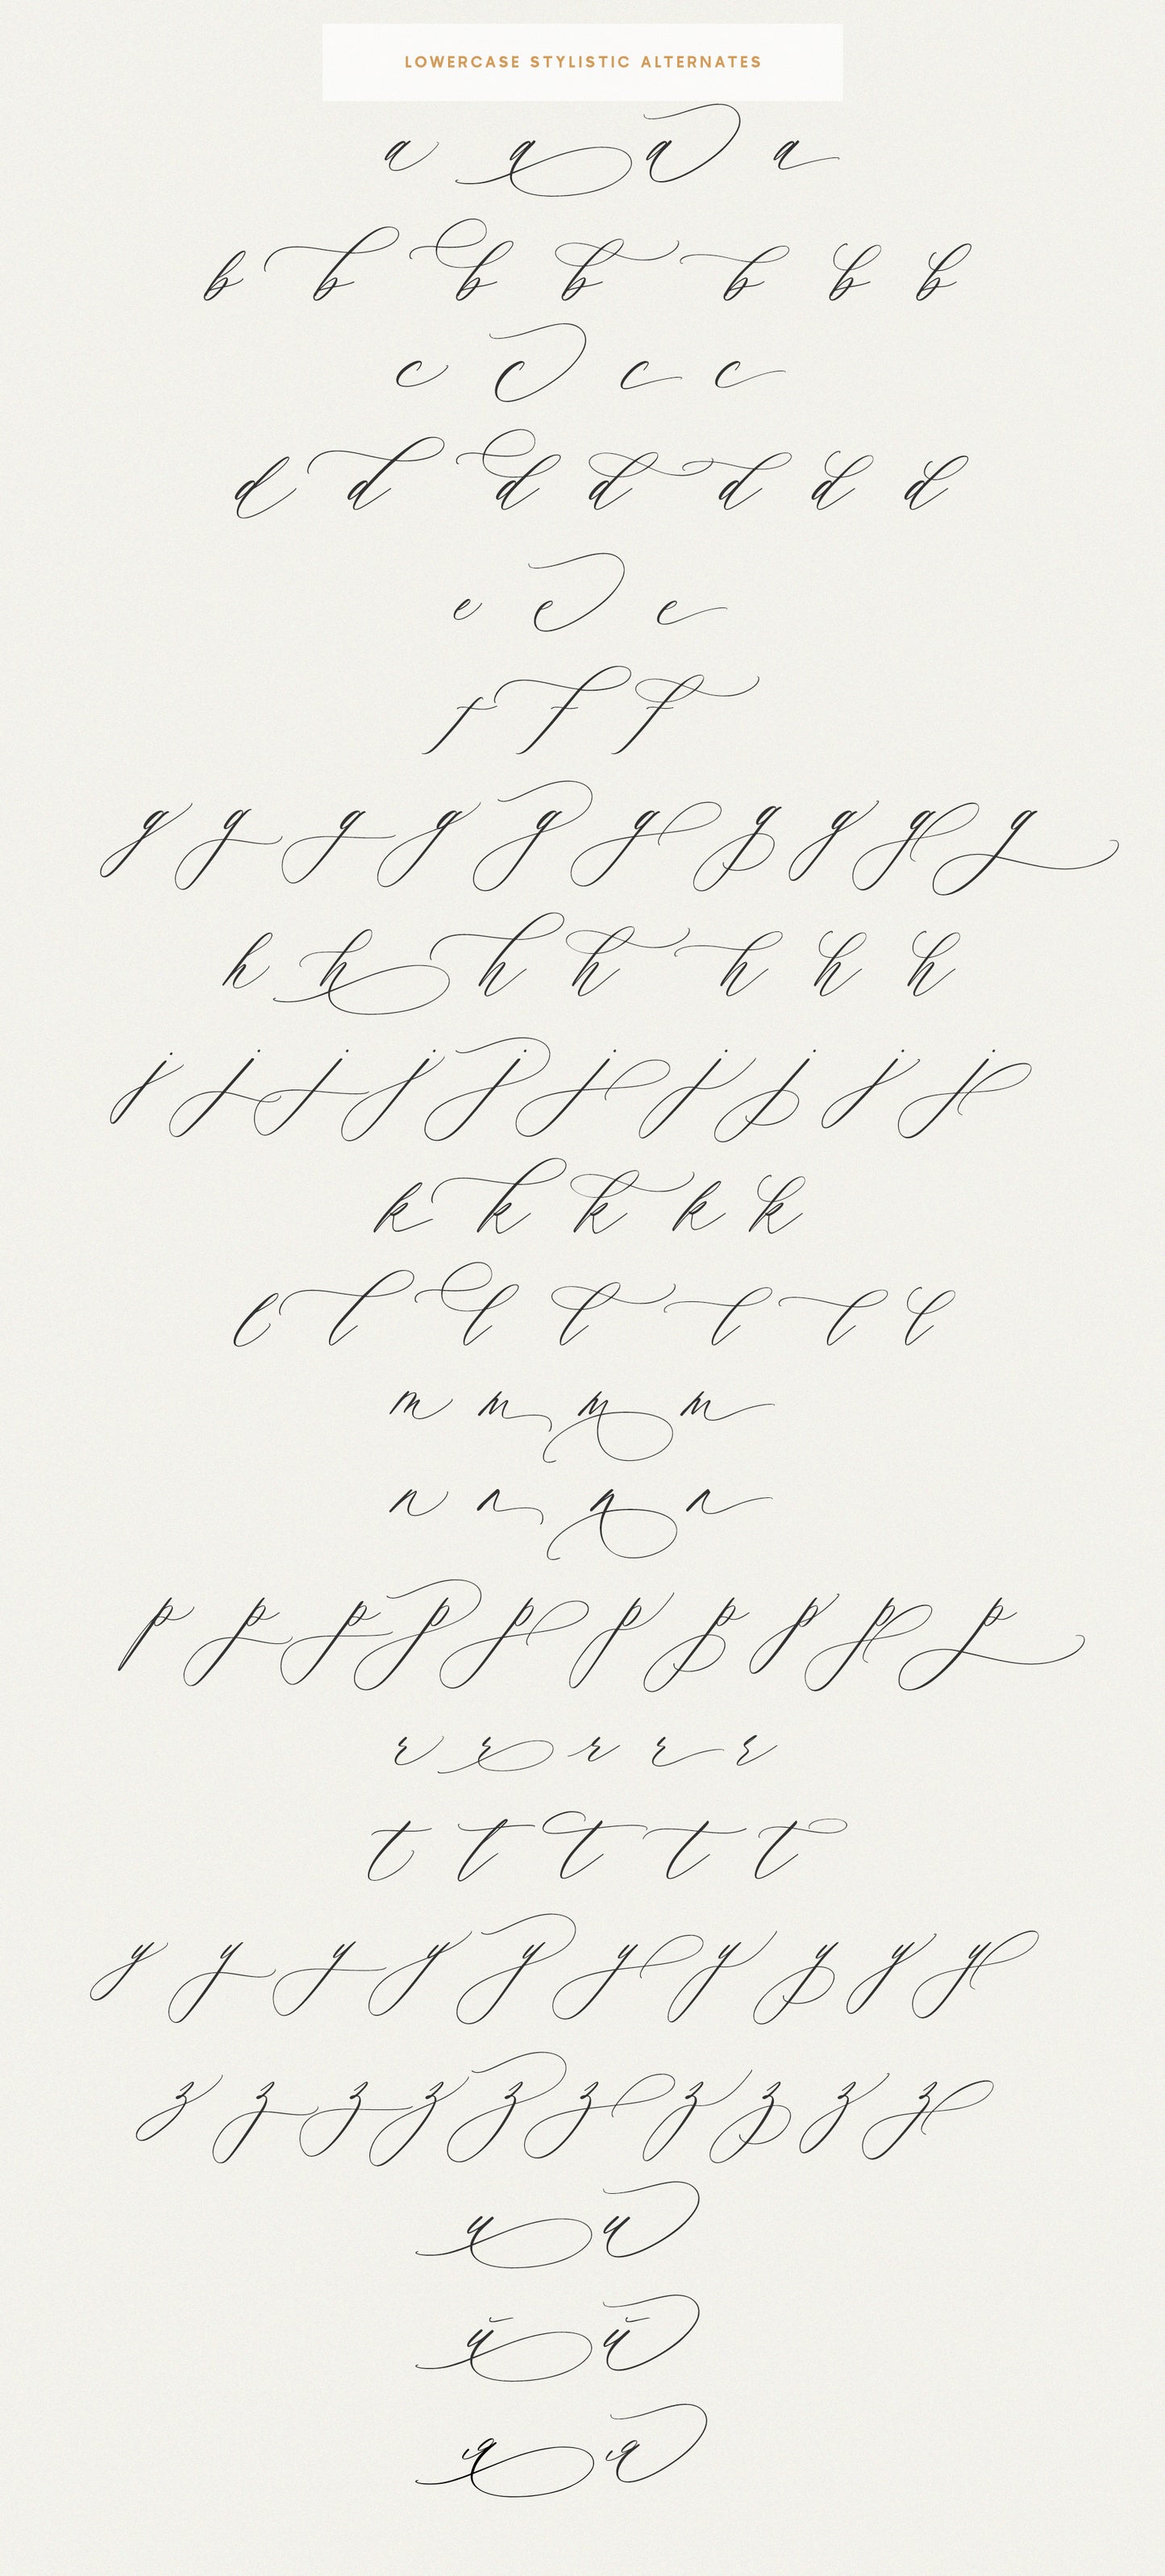 LOWERCASE STYLISTIC ALTERNATES
a a a a
b b b b b b b
c c c c
d d d d d d d
e e e
f f f
g g g g g g g g g g
h h h h h h h
j j j j j j j j j j
k k k k k
l l l l l l l
m m m m
n n n n
p p p p p p p p p p
r r r r r
t t t t t
y y y y y y y y y y
z z z z z z z z z z
u u
ū ū
a a